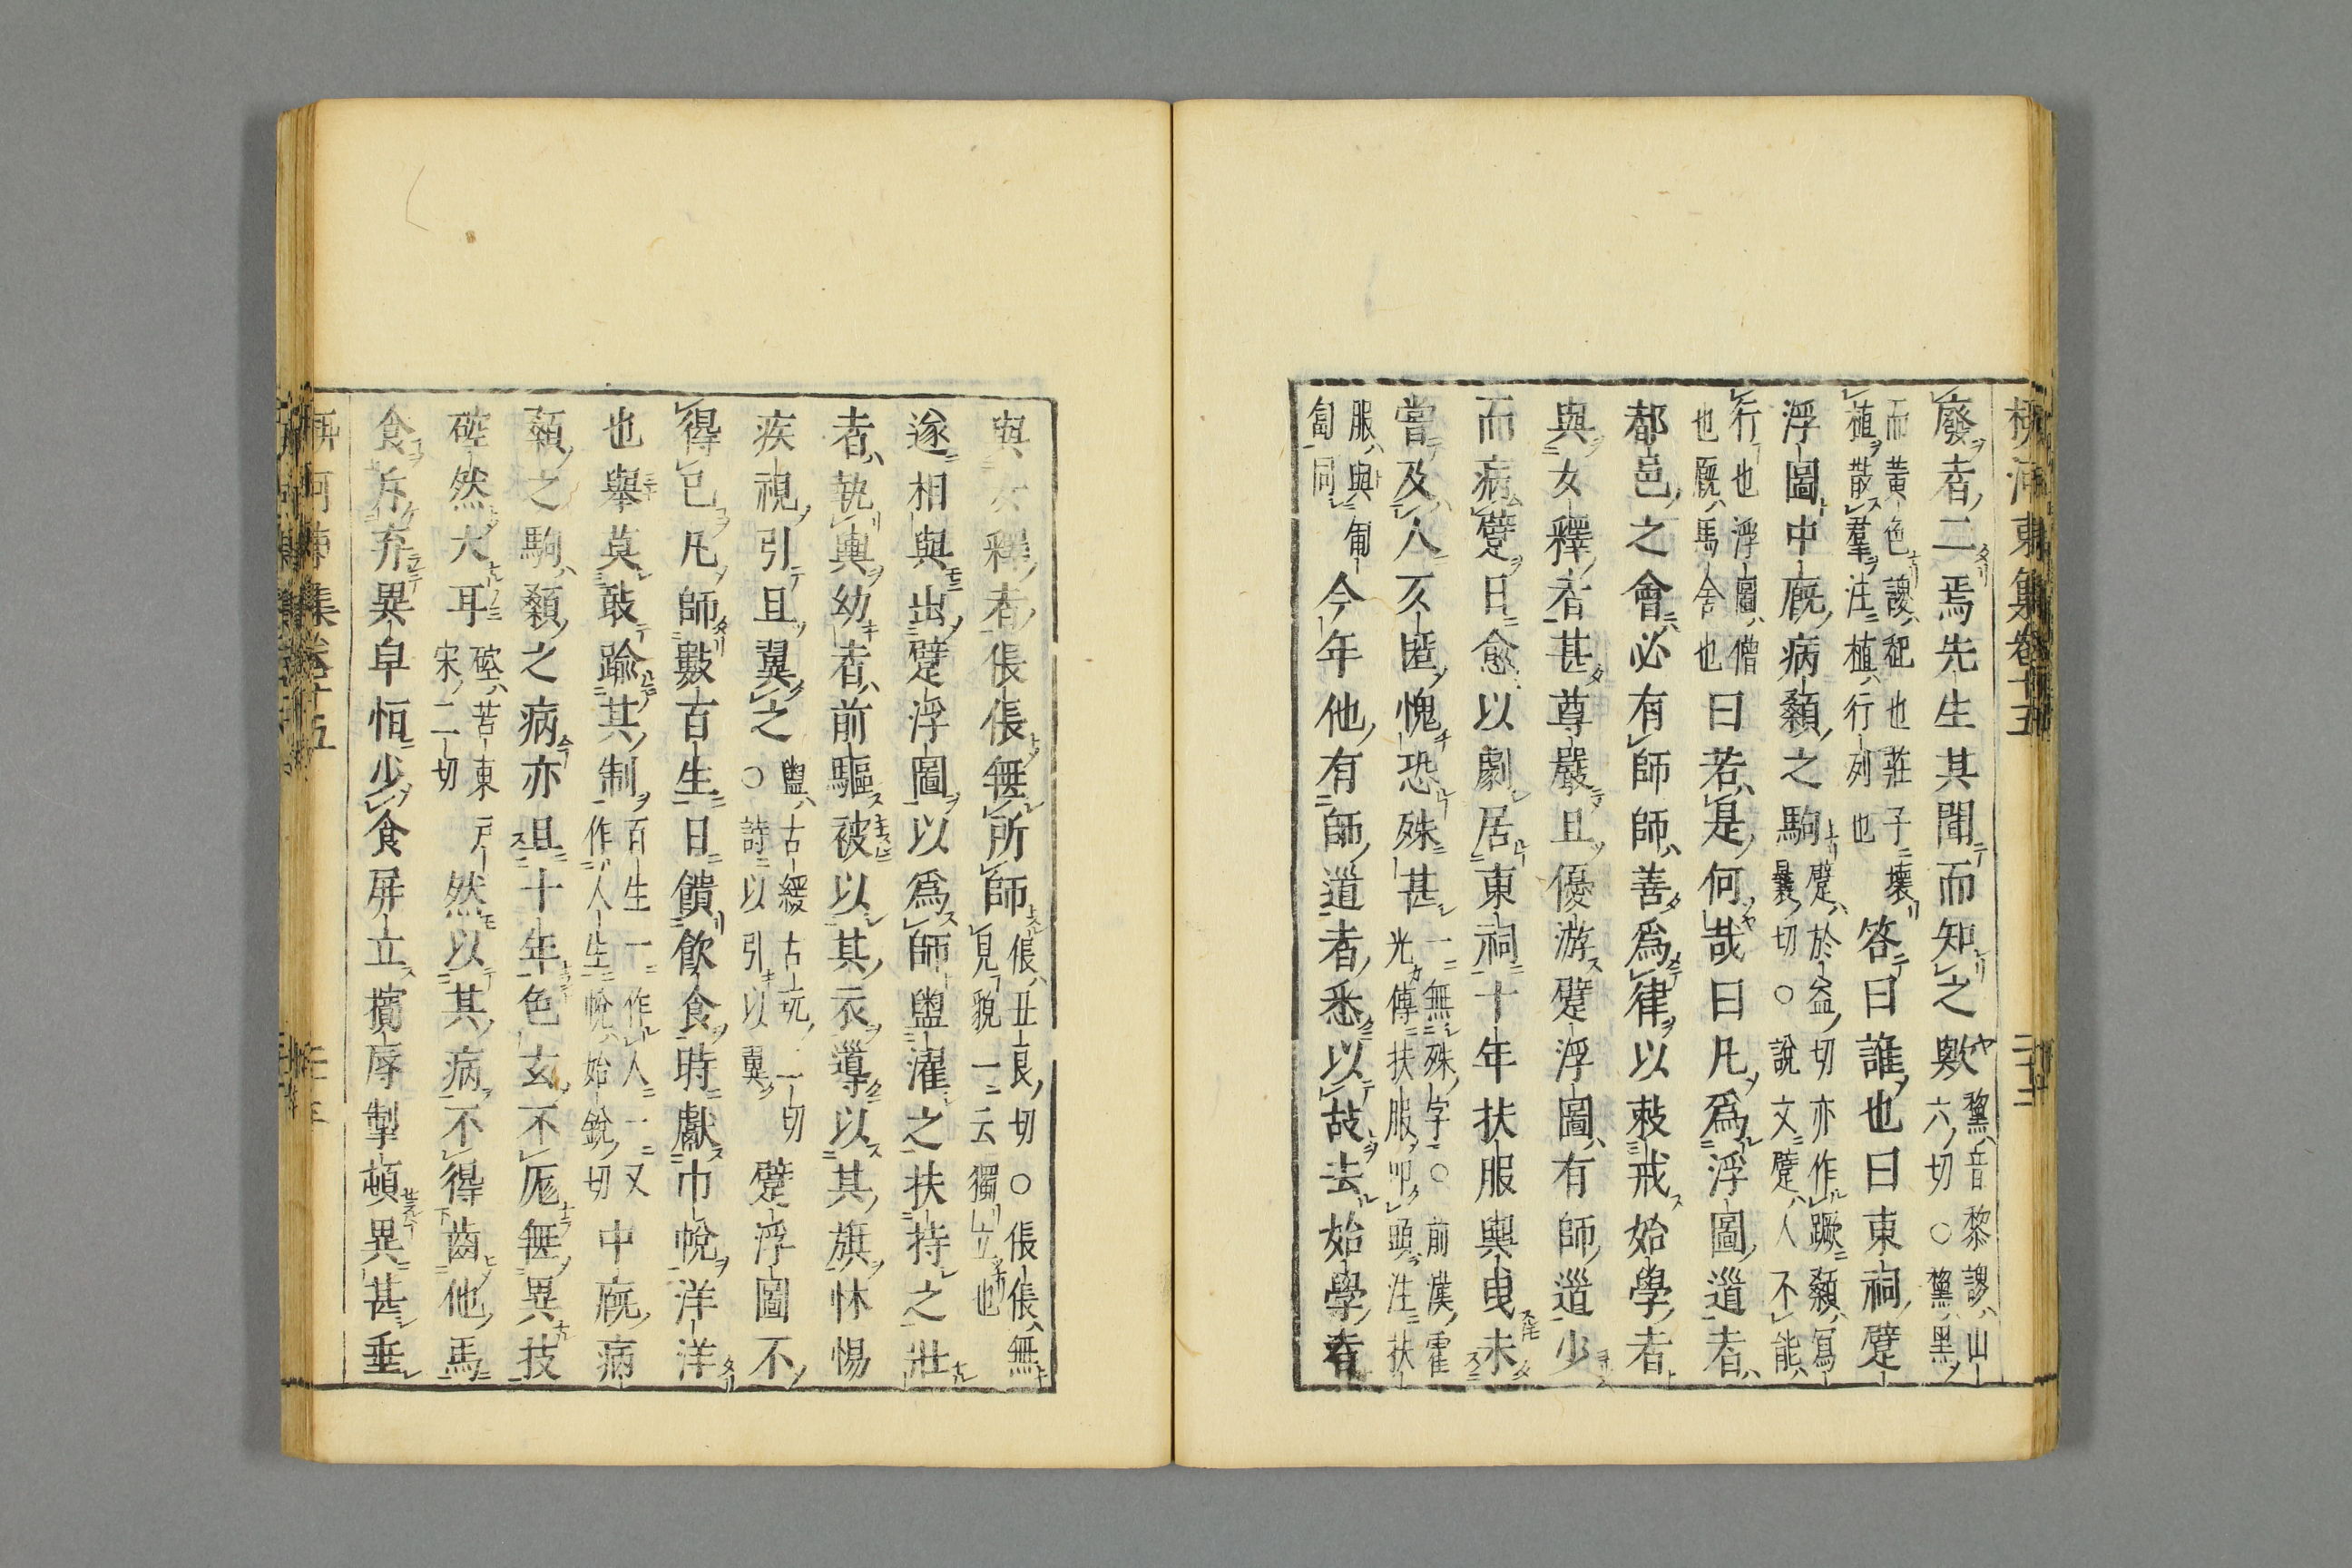 柳河東集卷十五
二十二
廢者二焉先生其聞而知之歟黧音黎謖山六切○黧黑
而黃色謖起也莊子壞植散羣注植行列也答曰誰也曰東祠躄
浮圖中廐病顙之駒躄於益切亦作𨇮顙寫曩切○說文躄人不能
行也浮圖僧也廐馬舍也曰若是何哉曰凡爲浮圖道者
都邑之會必有師師善爲律以敕戒始學者
與女釋者甚尊嚴且優游躄浮圖有師道少
而病躄日愈以劇居東祠十年扶服輿曳未
嘗及人交匿愧恐殊甚一無殊字○前漢霍光傳扶服叩頭注扶
服與匍匐同今年他有師道者悉以故去始學者
與女釋者倀倀無所師倀丑良切○倀倀無見貌一云獨立也
遂相與出躄浮圖以爲師盥濯之扶持之壯
者執輿幼者前驅被以其衣導以其旗怵惕
疾視引且翼之盥古緩古玩二切○詩以引以翼躄浮圖不
得已凡師數百生日饋飲食時獻巾帨洋洋
也舉莫敢踰其制百生一作人一又作人生帨始銳切中廐病
顙之駒顙之病亦且十年色玄不厖無異技
硿然大耳硿苦東戶宋二切然以其病不得齒他馬
食斥弃異皁恒少食屏立擯辱掣頓異甚垂
柳河東集卷十五